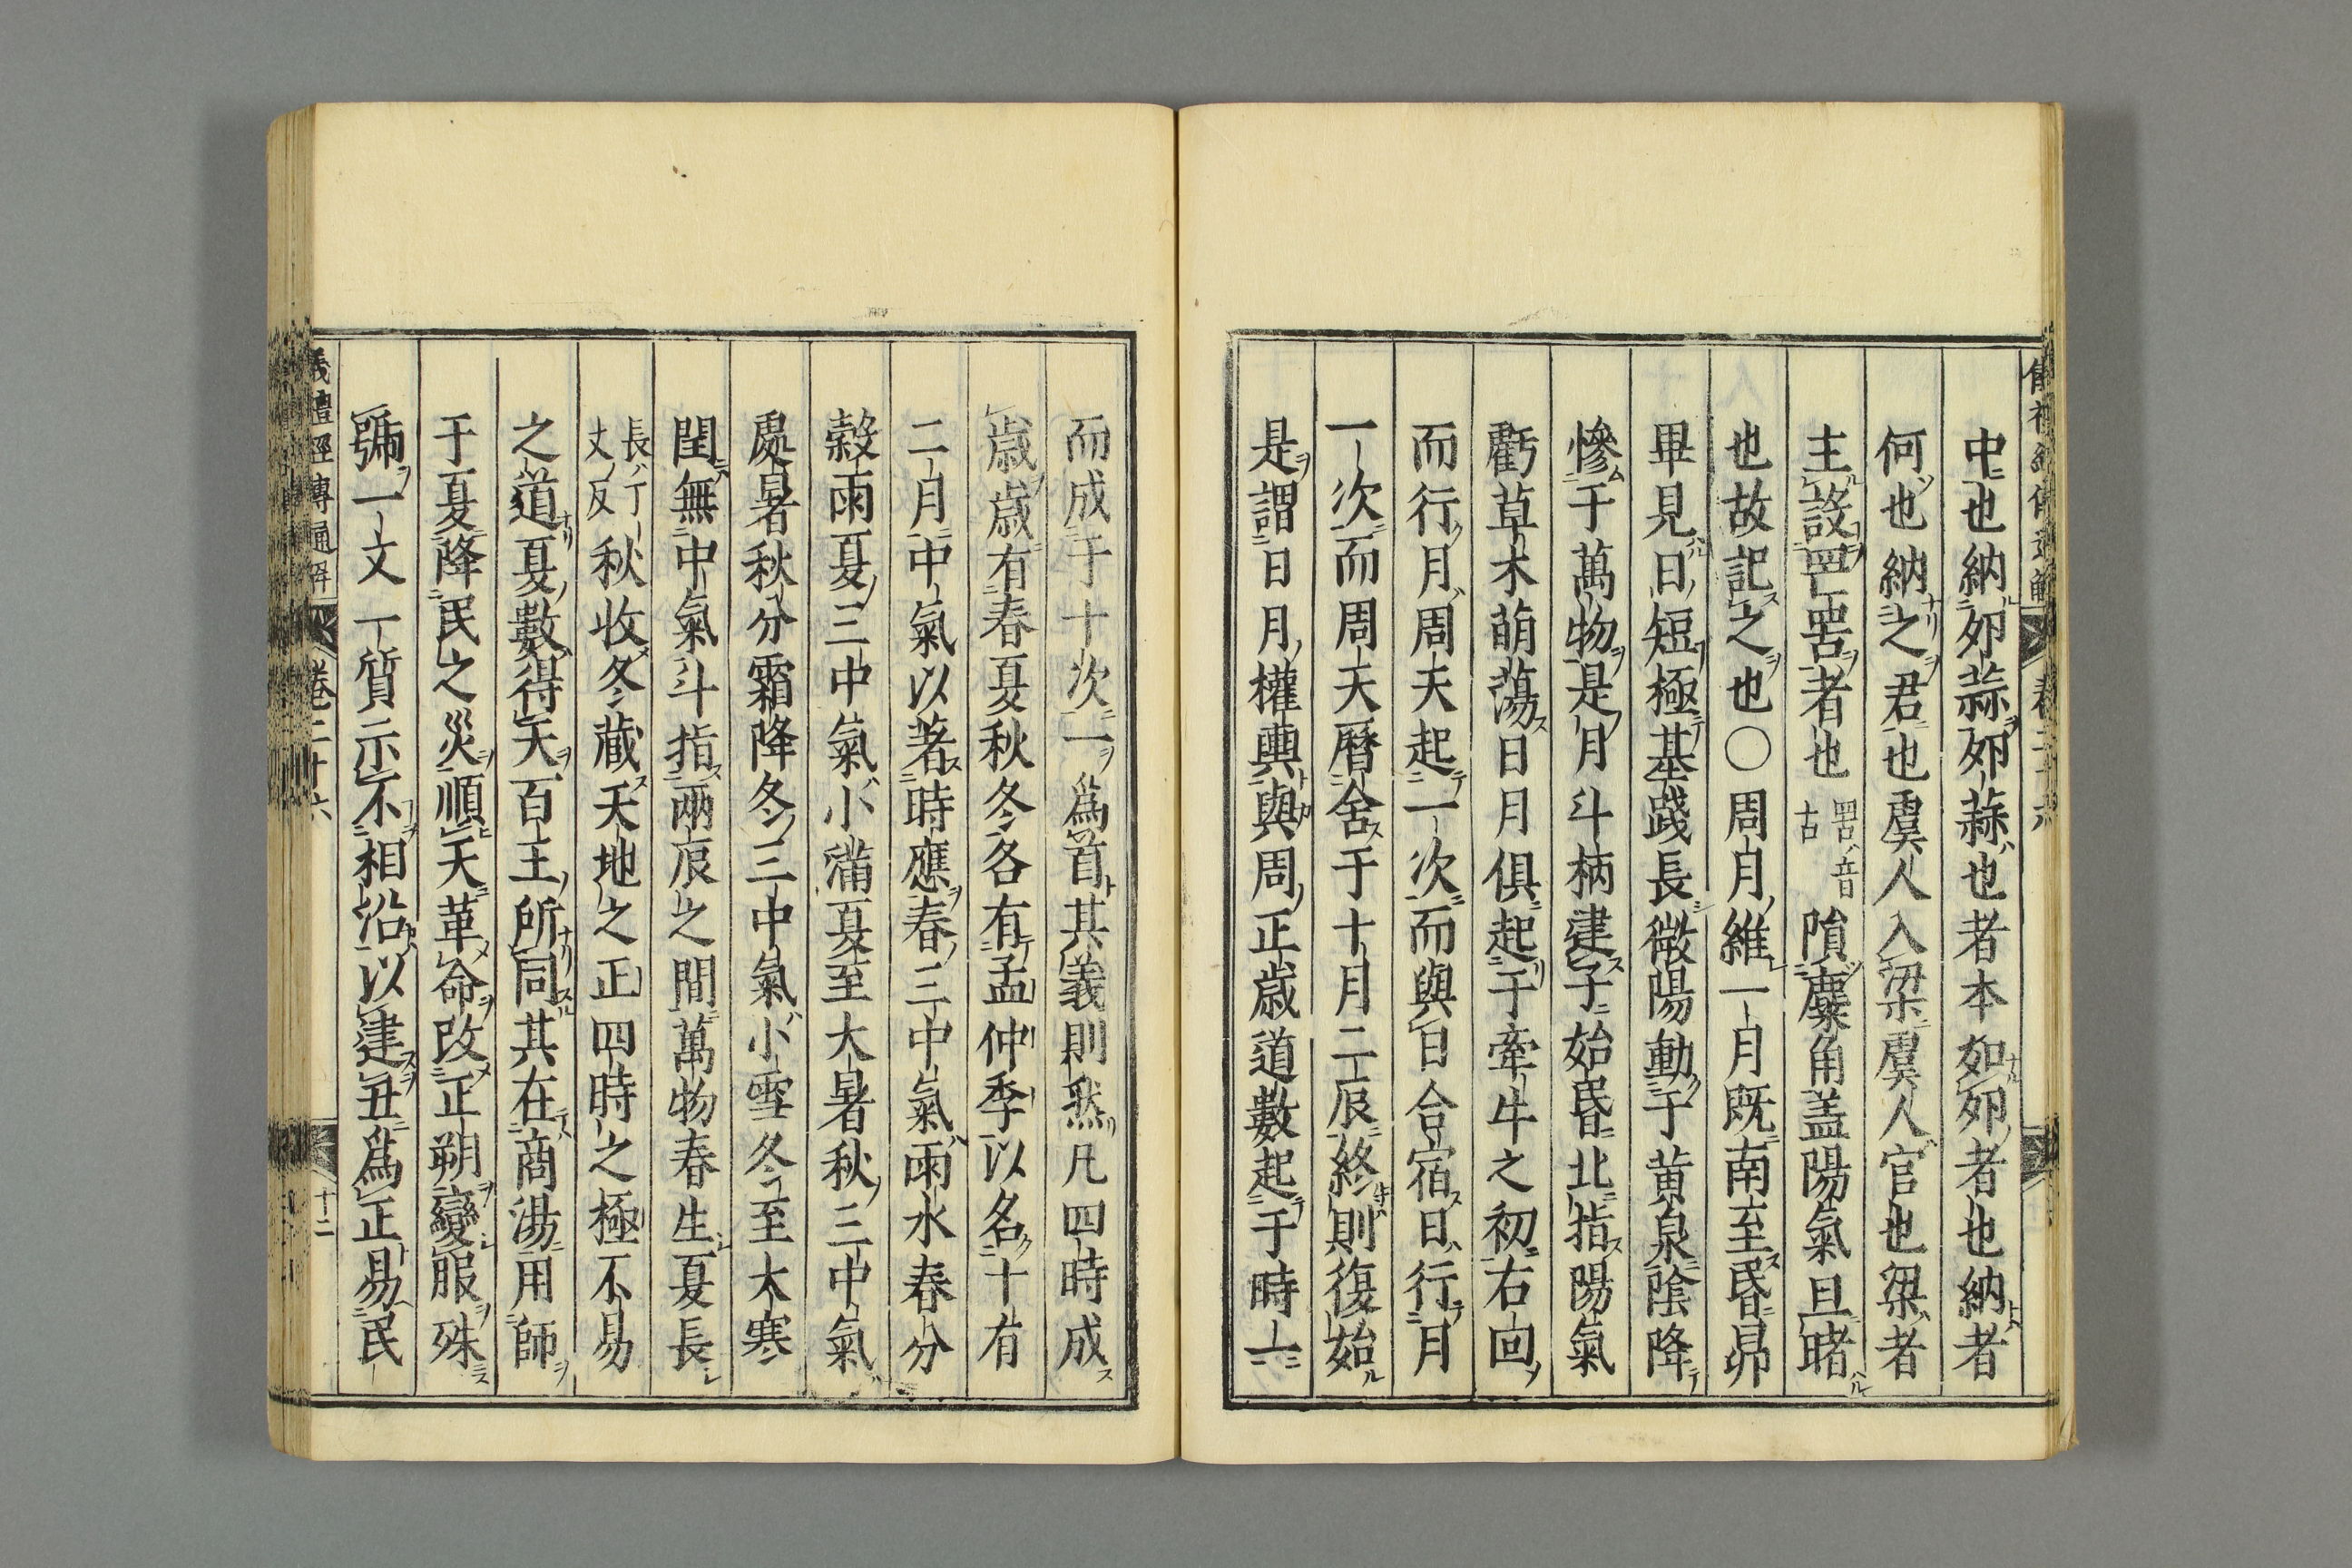 儀禮經傳通解
卷二十六
中也納卵蒜卵蒜也者本如卵者也納者
何也納之君也虞人入梁虞人官也梁者
主設罟罟者也罟音古隕麋角蓋陽氣旦睹
也故記之也〇周月維一月既南至昏昴
畢見日短極基踐長微陽動于黄泉陰降
慘于萬物是月斗柄建子始昏北指陽氣
虧草木萌蕩日月俱起于牽牛之初右回
而行月周天起一次而與日合宿日行月
一次而周天曆舍于十月二辰終則復始
是謂日月權輿與周正歲道數起于時一
而成于十次一爲首其義則然凡四時成
歲歲有春夏秋冬各有孟仲季以名十有
二月中氣以著時應春三中氣雨水春分
穀雨夏三中氣小滿夏至大暑秋三中氣
處暑秋分霜降冬三中氣小雪冬至大寒
閏無中氣斗指兩辰之間萬物春生夏長
長丁丈反秋收冬藏天地之正四時之極不易
之道夏數得天百王所同其在商湯用師
于夏降民之災順天革命改正朔變服殊
號一文一質示不相沿以建丑爲正易民
儀禮經傳通解
卷二十六
十二